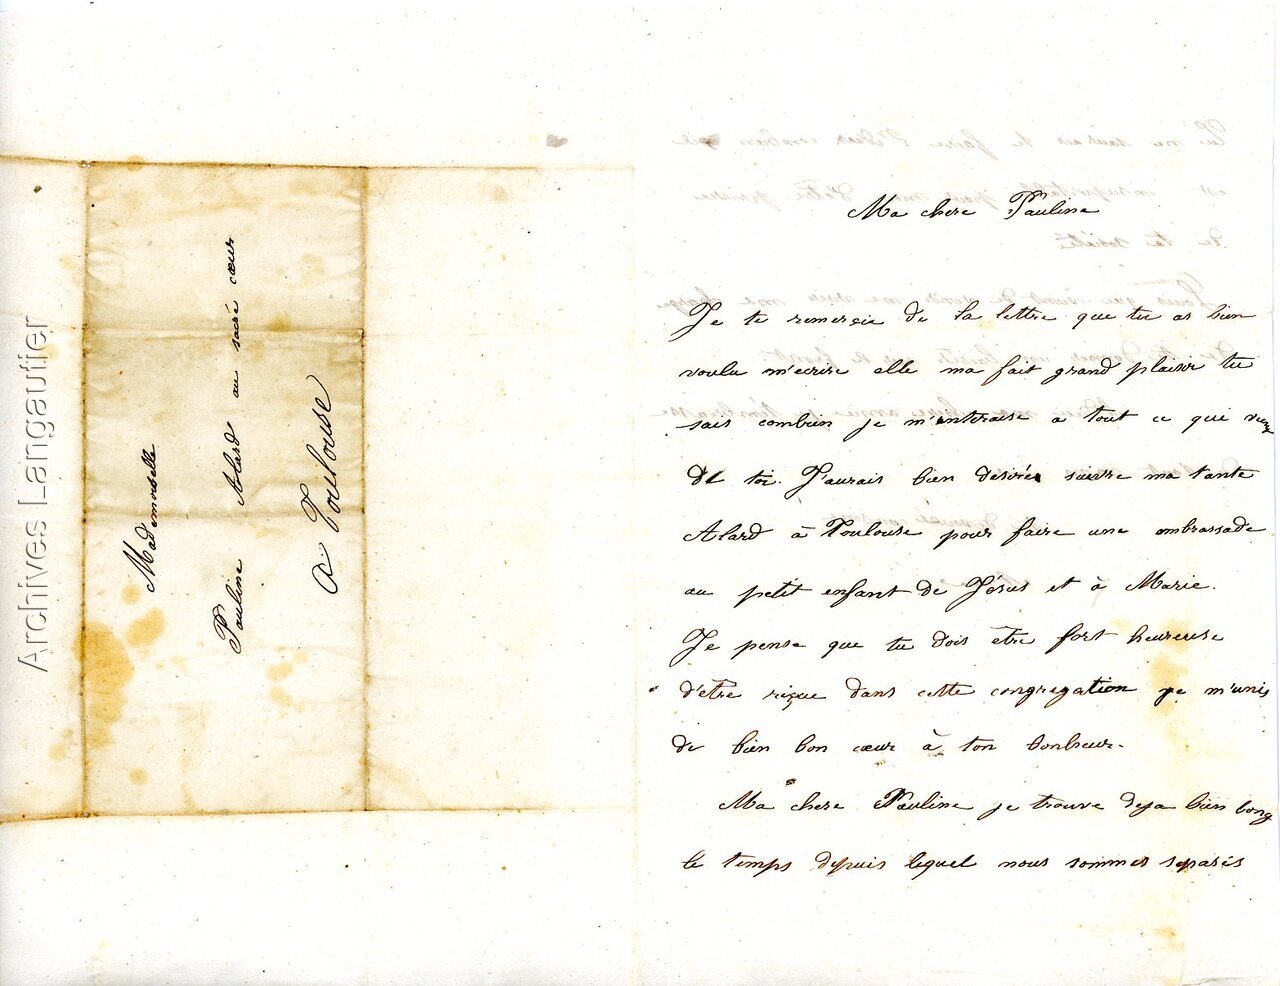 Archives Langautier
Mademoiselle
Pauline Alard au sacré cœur
a Toulouse
Ma chere Pauline
Je te remerçie de la lettre que tu as bien
voulu m'ecrire elle ma fait grand plaisir tu
sais combien je m'interaise a tout ce qui vient
de toi. J'aurais bien desirée suivre ma tante
Alard à Toulouse pour faire une embrassade
au petit enfant de Jésus et à Marie.
Je pense que tu dois être fort heureuse
d'etre reçue dans cette congregation je m'unis
de bien bon cœur à ton bonheur.
Ma chere Pauline je trouve deja bien long
le temps depuis lequel nous sommes separés